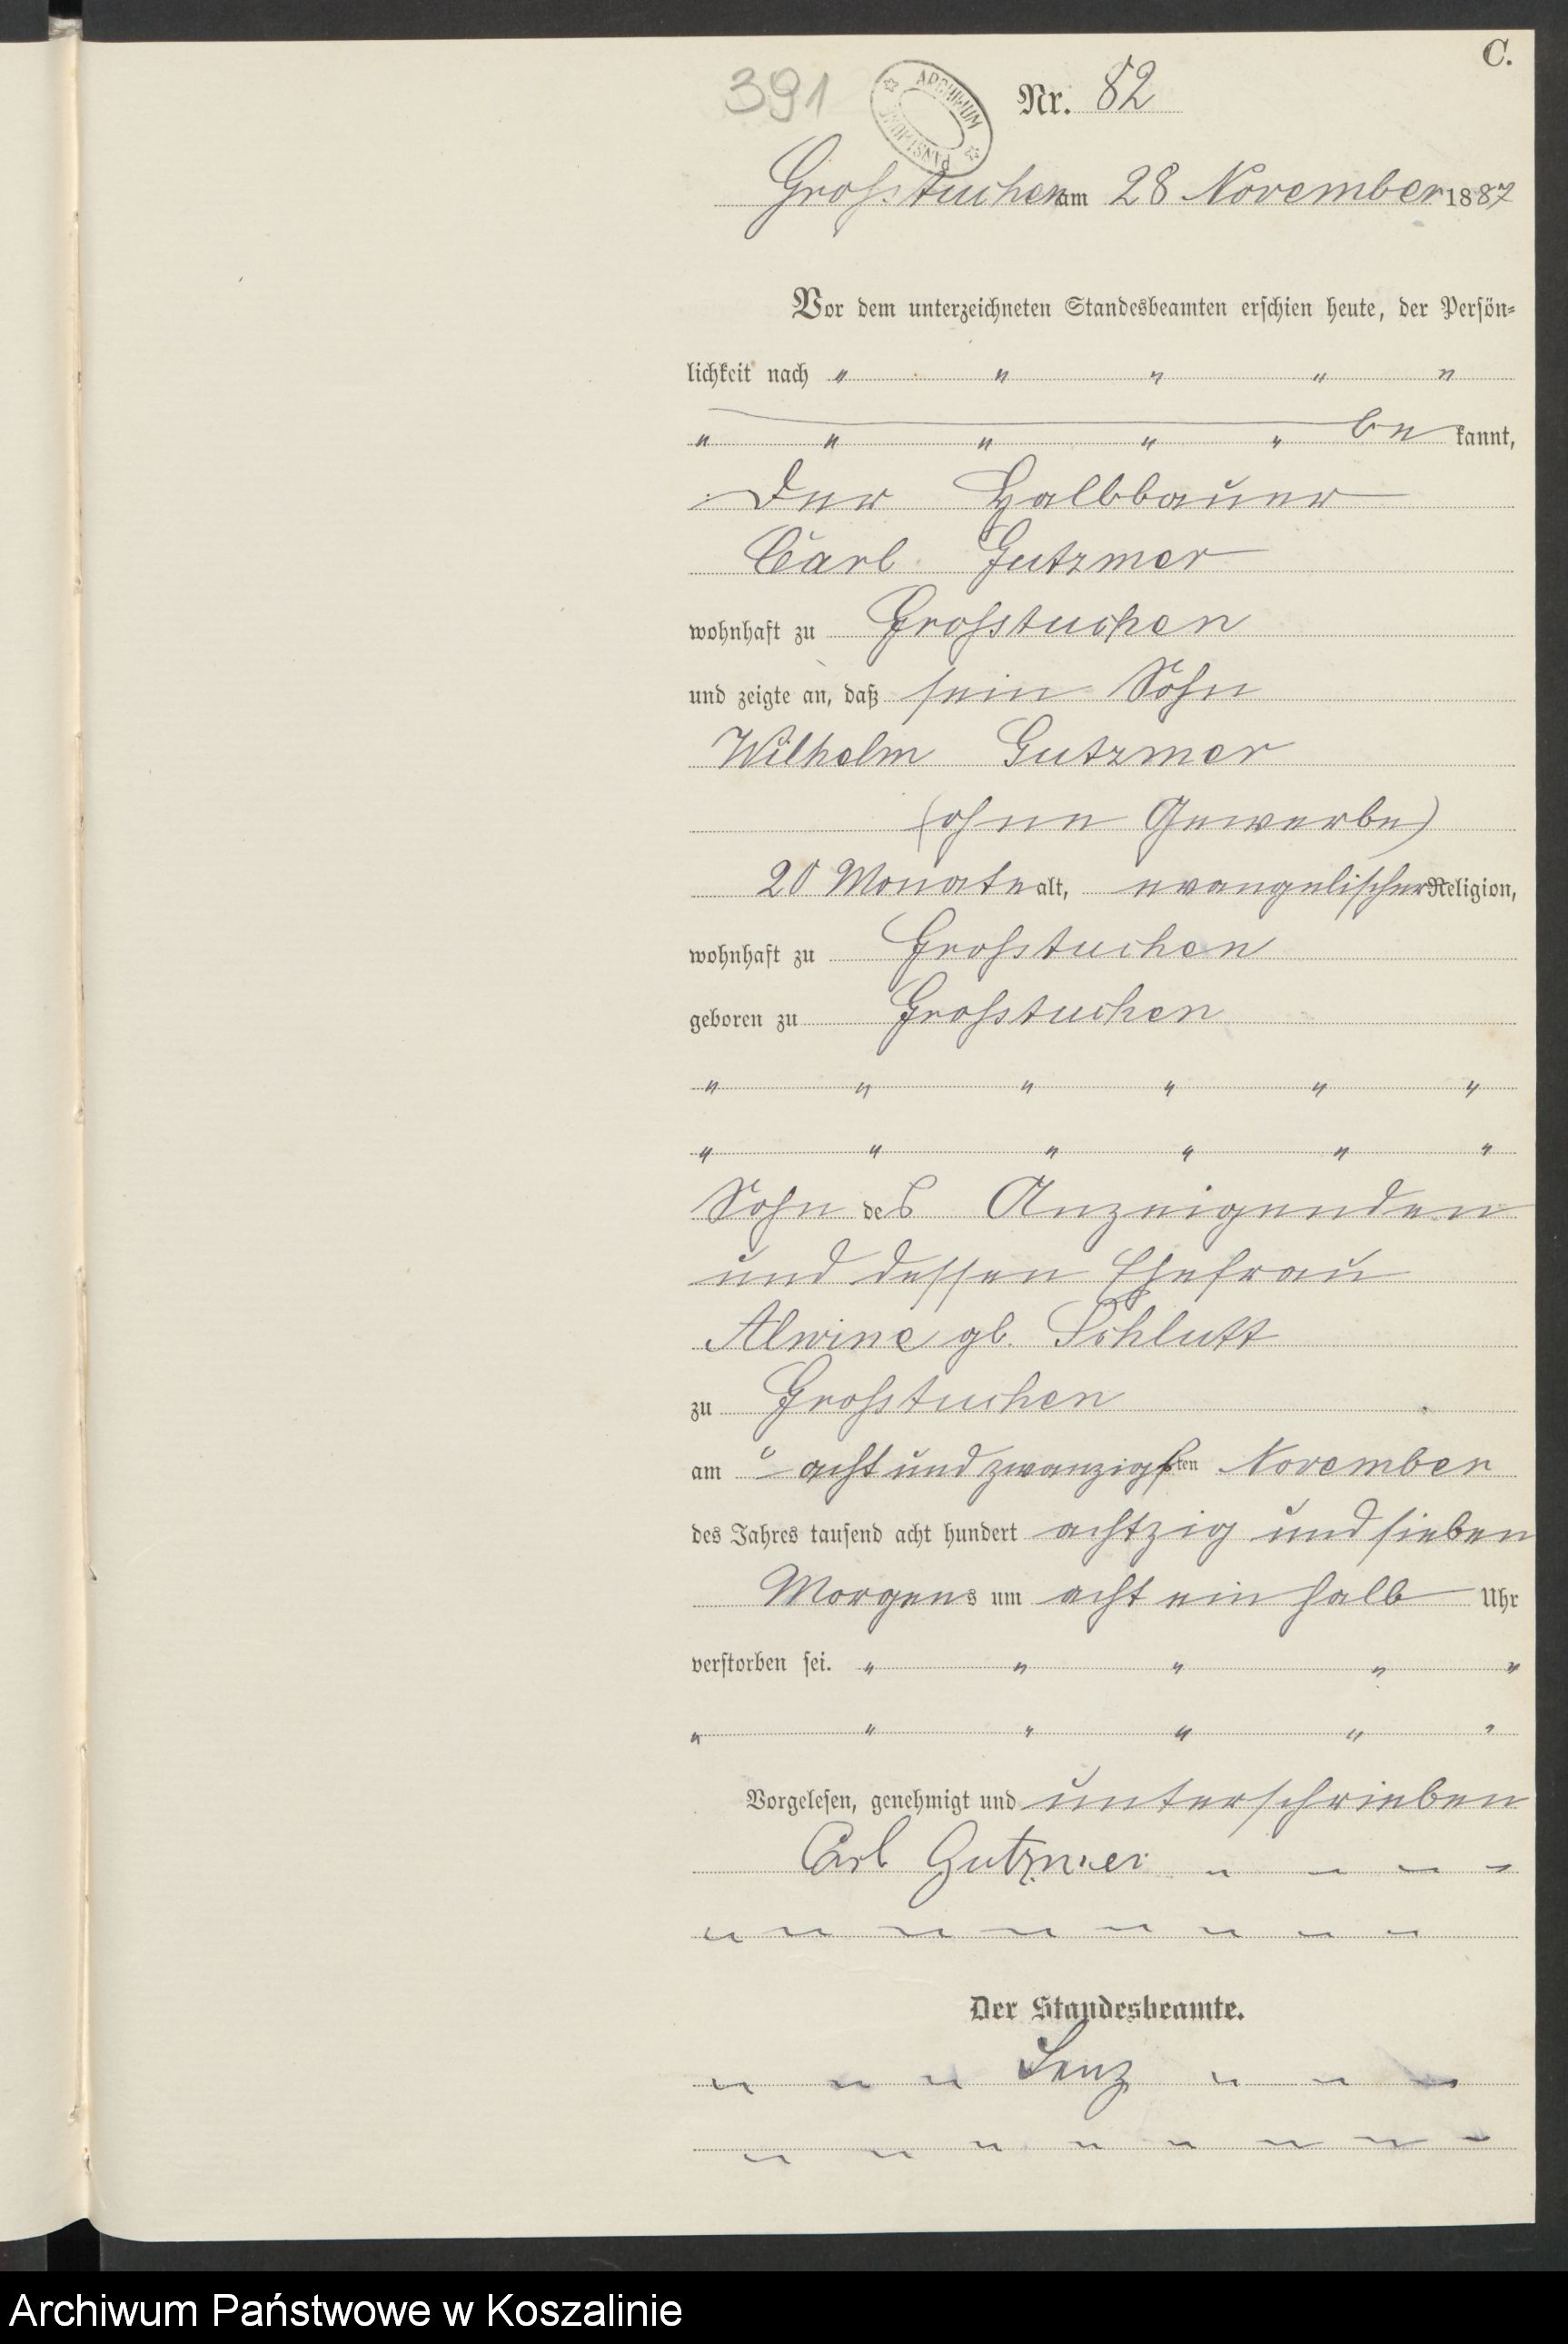 C.
391
ARCHIWUM PAŃSTWOWE
Nr. 82
Grosstuchen am 28 November 1887
Vor dem unterzeichneten Standesbeamten erschien heute, der Persön-
lichkeit nach " " " " "
" " " " " be kannt,
der Halbbauer
Carl Gutzmer
wohnhaft zu Grosstuchen
und zeigte an, daß sein Sohn
Wilhelm Gutzmer
(ohne Gewerbe)
20 Monate alt, evangelischer Religion,
wohnhaft zu Grosstuchen
geboren zu Grosstuchen
" " " " " "
" " " " " "
Sohn des Anzeigenden
und dessen Ehefrau
Alwine gb. Schlutt
zu Grosstuchen
am acht und zwanzigsten November
des Jahres tausend acht hundert achtzig und sieben
Morgens um acht ein halb Uhr
verstorben sei. " " " " "
" " " " " "
Vorgelesen, genehmigt und unterschrieben
Carl Gutzmer " " " "
" " " " " " " "
Der Standesbeamte.
" " " Lenz " " "
" " " " " " " "
Archiwum Państwowe w Koszalinie